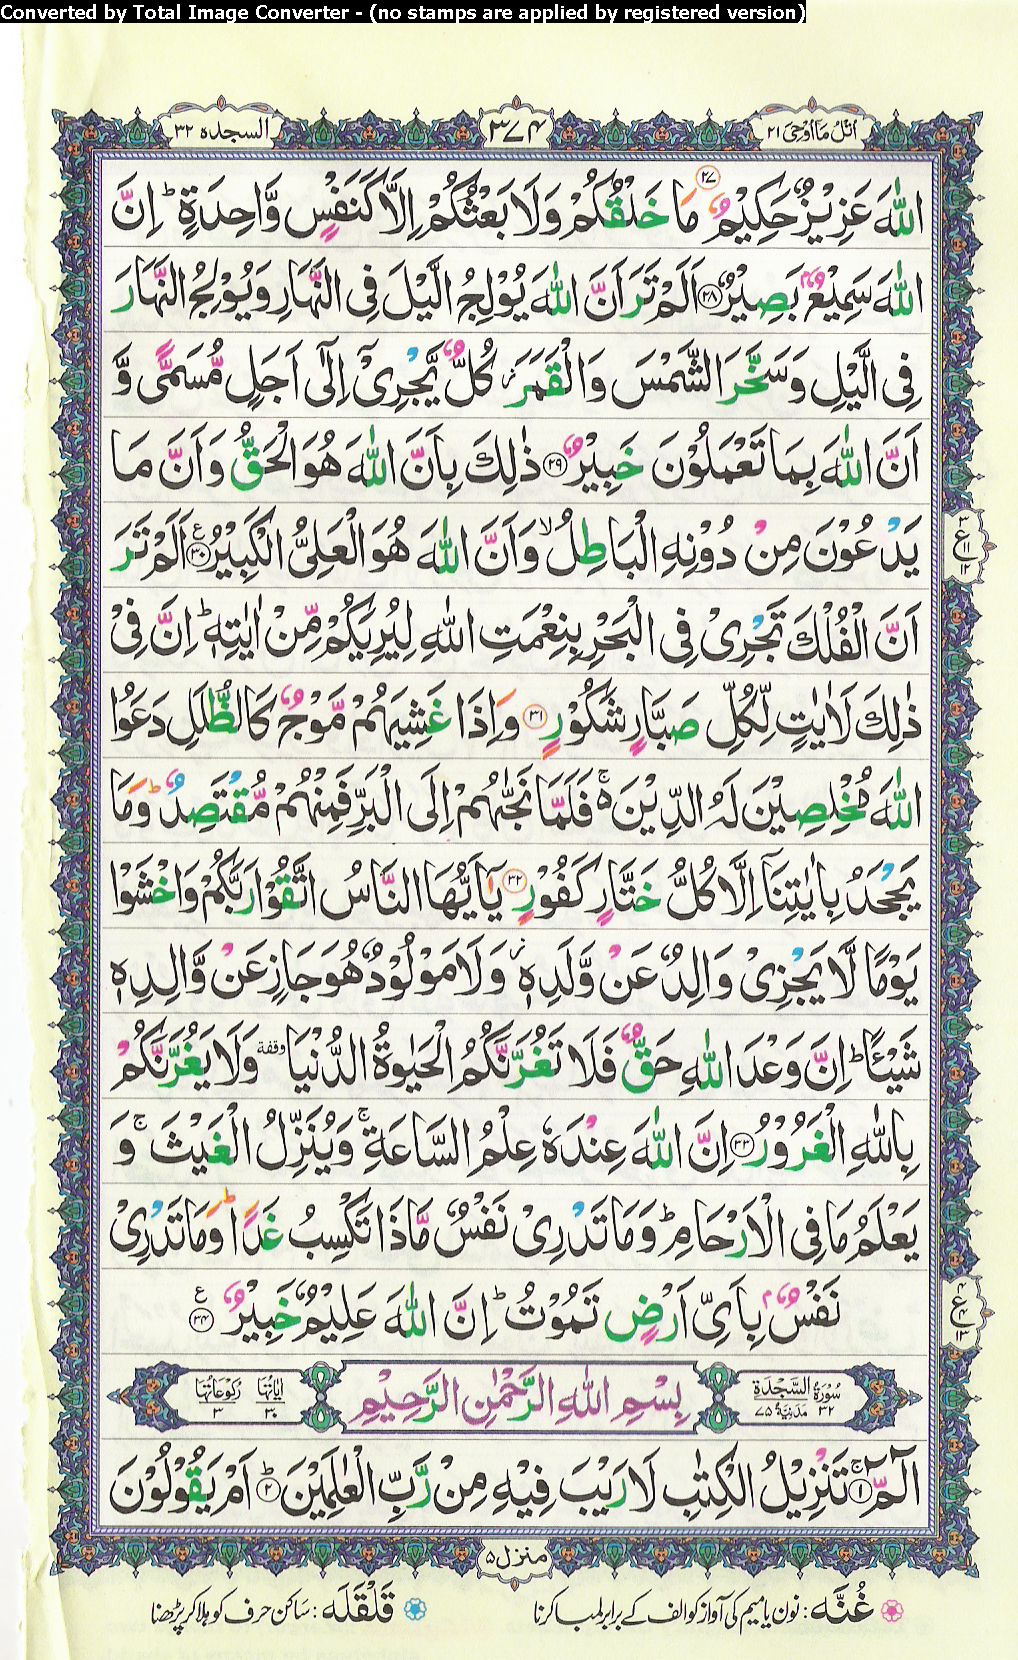 Converted by Total Image Converter - (no stamps are applied by registered version)
اتل ما اوحی ۲۱
۳۷۴
السجدہ ۳۲
اللّٰهَ عَزِیْزٌ حَكِیْمٌ ۲۷ مَا خَلْقُكُمْ وَلَا بَعْثُكُمْ اِلَّا كَنَفْسٍ وَّاحِدَةٍ ؕ اِنَّ
اللّٰهَ سَمِیْعٌۢ بَصِیْرٌ ۲۸ اَلَمْ تَرَ اَنَّ اللّٰهَ یُوْلِجُ الَّیْلَ فِی النَّهَارِ وَیُوْلِجُ النَّهَارَ
فِی الَّیْلِ وَسَخَّرَ الشَّمْسَ وَالْقَمَرَ ؗ كُلٌّ یَّجْرِیْۤ اِلٰۤی اَجَلٍ مُّسَمًّی وَّ
اَنَّ اللّٰهَ بِمَا تَعْمَلُوْنَ خَبِیْرٌ ۲۹ ذٰلِكَ بِاَنَّ اللّٰهَ هُوَ الْحَقُّ وَاَنَّ مَا
یَدْعُوْنَ مِنْ دُوْنِهِ الْبَاطِلُ ۙ وَاَنَّ اللّٰهَ هُوَ الْعَلِیُّ الْكَبِیْرُ ۳۰ ع اَلَمْ تَرَ
۳ ع ۱۱ ۱۲
اَنَّ الْفُلْكَ تَجْرِیْ فِی الْبَحْرِ بِنِعْمَتِ اللّٰهِ لِیُرِیَكُمْ مِّنْ اٰیٰتِهٖ ؕ اِنَّ فِیْ
ذٰلِكَ لَاٰیٰتٍ لِّكُلِّ صَبَّارٍ شَكُوْرٍ ۳۱ وَاِذَا غَشِیَهُمْ مَّوْجٌ كَالظُّلَلِ دَعَوُا
اللّٰهَ مُخْلِصِیْنَ لَهُ الدِّیْنَ ۚ۬ فَلَمَّا نَجّٰىهُمْ اِلَی الْبَرِّ فَمِنْهُمْ مُّقْتَصِدٌ ؕ وَمَا
یَجْحَدُ بِاٰیٰتِنَاۤ اِلَّا كُلُّ خَتَّارٍ كَفُوْرٍ ۳۲ یٰۤاَیُّهَا النَّاسُ اتَّقُوْا رَبَّكُمْ وَاخْشَوْا
یَوْمًا لَّا یَجْزِیْ وَالِدٌ عَنْ وَّلَدِهٖ ؗ وَلَا مَوْلُوْدٌ هُوَ جَازٍ عَنْ وَّالِدِهٖ
شَیْـًٔا ؕ اِنَّ وَعْدَ اللّٰهِ حَقٌّ فَلَا تَغُرَّنَّكُمُ الْحَیٰوةُ الدُّنْیَا وقفة وَلَا یَغُرَّنَّكُمْ
بِاللّٰهِ الْغَرُوْرُ ۳۳ اِنَّ اللّٰهَ عِنْدَهٗ عِلْمُ السَّاعَةِ ۚ وَیُنَزِّلُ الْغَیْثَ ۚ وَ
یَعْلَمُ مَا فِی الْاَرْحَامِ ؕ وَمَا تَدْرِیْ نَفْسٌ مَّاذَا تَكْسِبُ غَدًا ؕ وَمَا تَدْرِیْ
نَفْسٌۢ بِاَیِّ اَرْضٍ تَمُوْتُ ؕ اِنَّ اللّٰهَ عَلِیْمٌ خَبِیْرٌ ۳۴ ع
۴ ع ۴ ۱۳
سُوْرَةُ السَّجْدَةِ ۳۲ مَدَنِیَّةٌ ۷۵
بِسْمِ اللّٰهِ الرَّحْمٰنِ الرَّحِیْمِ
اٰیَاتُهَا ۳۰ رُكُوْعَاتُهَا ۳
الٓمّٓ ۚ ۱ تَنْزِیْلُ الْكِتٰبِ لَا رَیْبَ فِیْهِ مِنْ رَّبِّ الْعٰلَمِیْنَ ؕ ۲ اَمْ یَقُوْلُوْنَ
منزل ۵
غُنَّه: نون یا میم کی آواز کو الف کے برابر لمبا کرنا
قَلْقَلَه: ساکن حرف کو ہلا کر پڑھنا